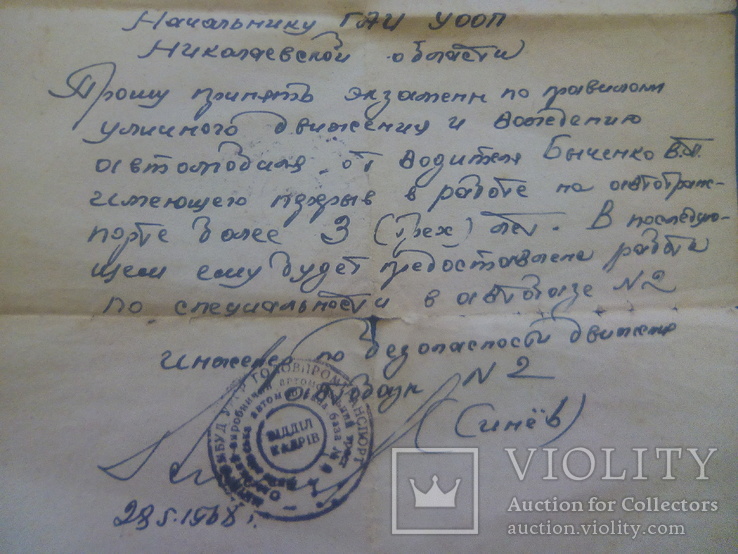 Начальнику ГАИ УООП
Николаевской области
Прошу принять экзамены по правилам
уличного движения и вождению
автомобиля от водителя Быченко В.П.
имеющего перерыв в работе на автотранс-
порте более 3 (трех) лет. В последую-
щем ему будет предоставлена работа
по специальности в автобазе N2
Инженер по безопасности движения
автобазы N2
(Синёв)
ВІДДІЛ
КАДРІВ
28.5.1968 г.
VIOLITY
Auction for Collectors
auction.violity.com